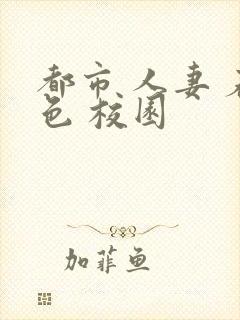 都市人妻
色校园
加菲鱼